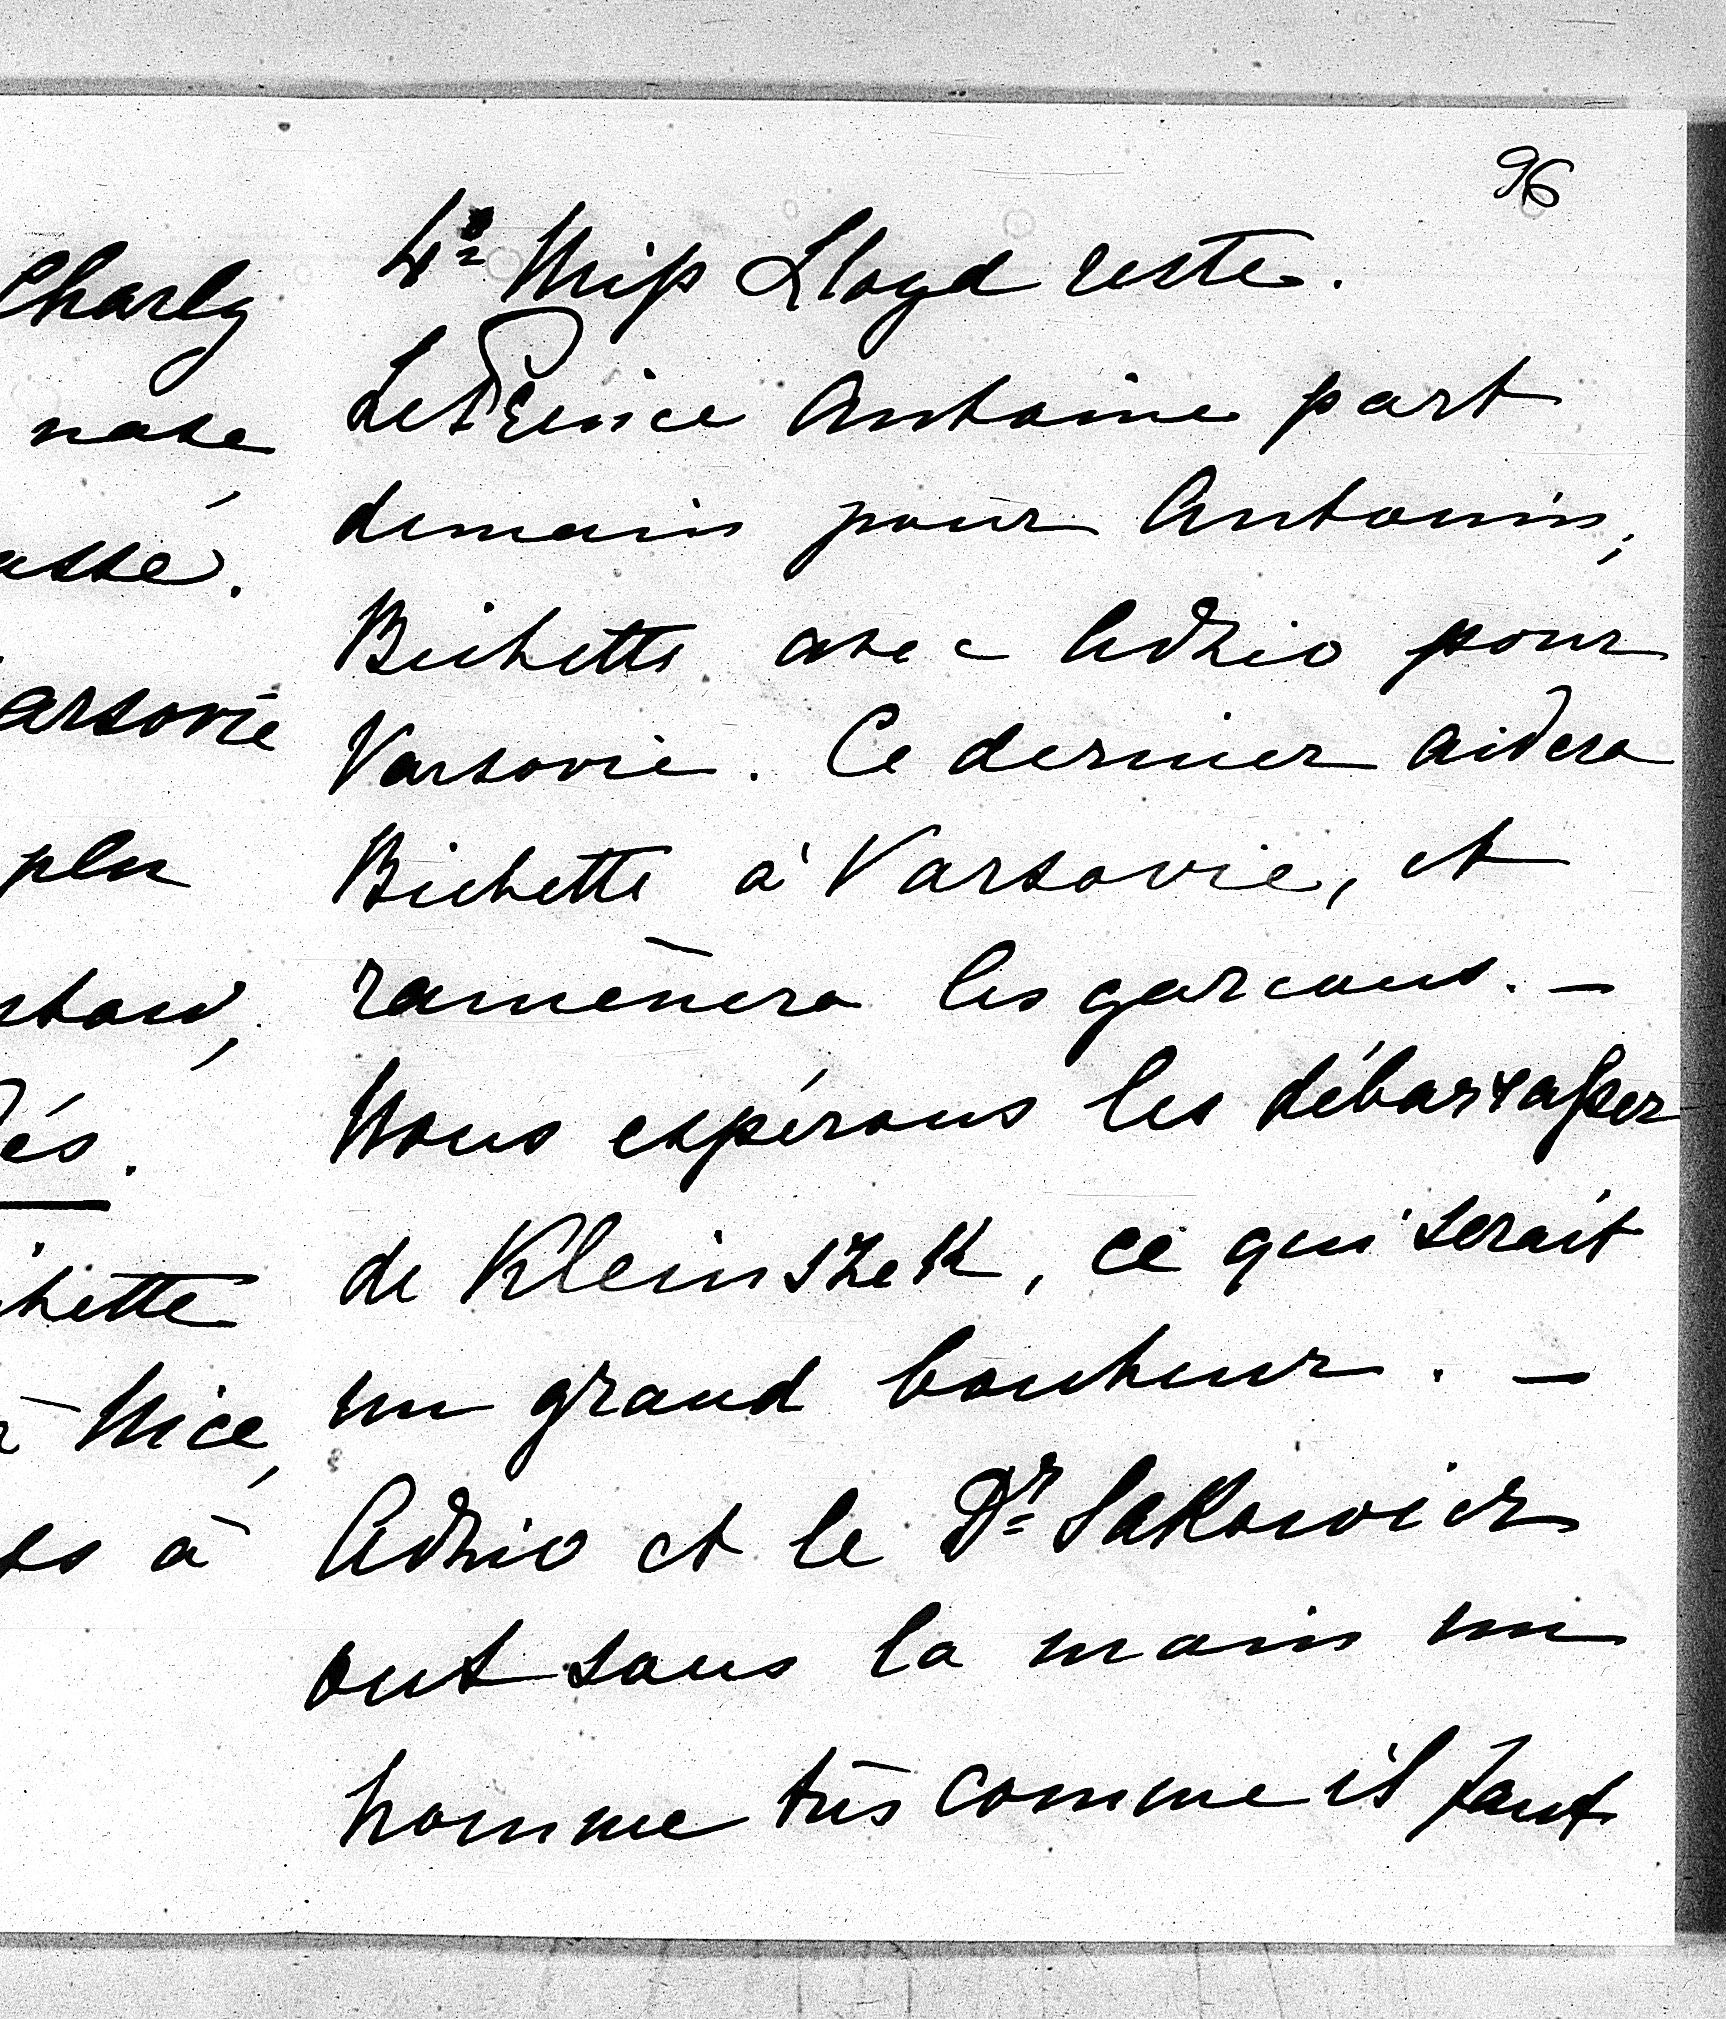 96
4º Miss Lloyd reste.
Le Prince Antoine part
demain pour Antonin,
Bichette avec Adzio pour
Varsovie. Ce dernier aidera
Bichette à Varsovie, et
ramènera les garcons. —
Nous espérons les débarrasser
de Kleinszek, ce qui serait
un grand bonheur. —
Adzio et le Dr Sakowicz
ont sous la main un
homme très comme il faut
Charly
arsovie
plu
és.
hette
à Nice,
à